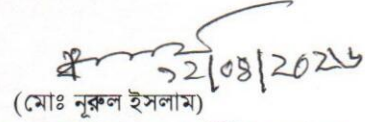 ১২/০৪/২০২৬
(মোঃ নূরুল ইসলাম)